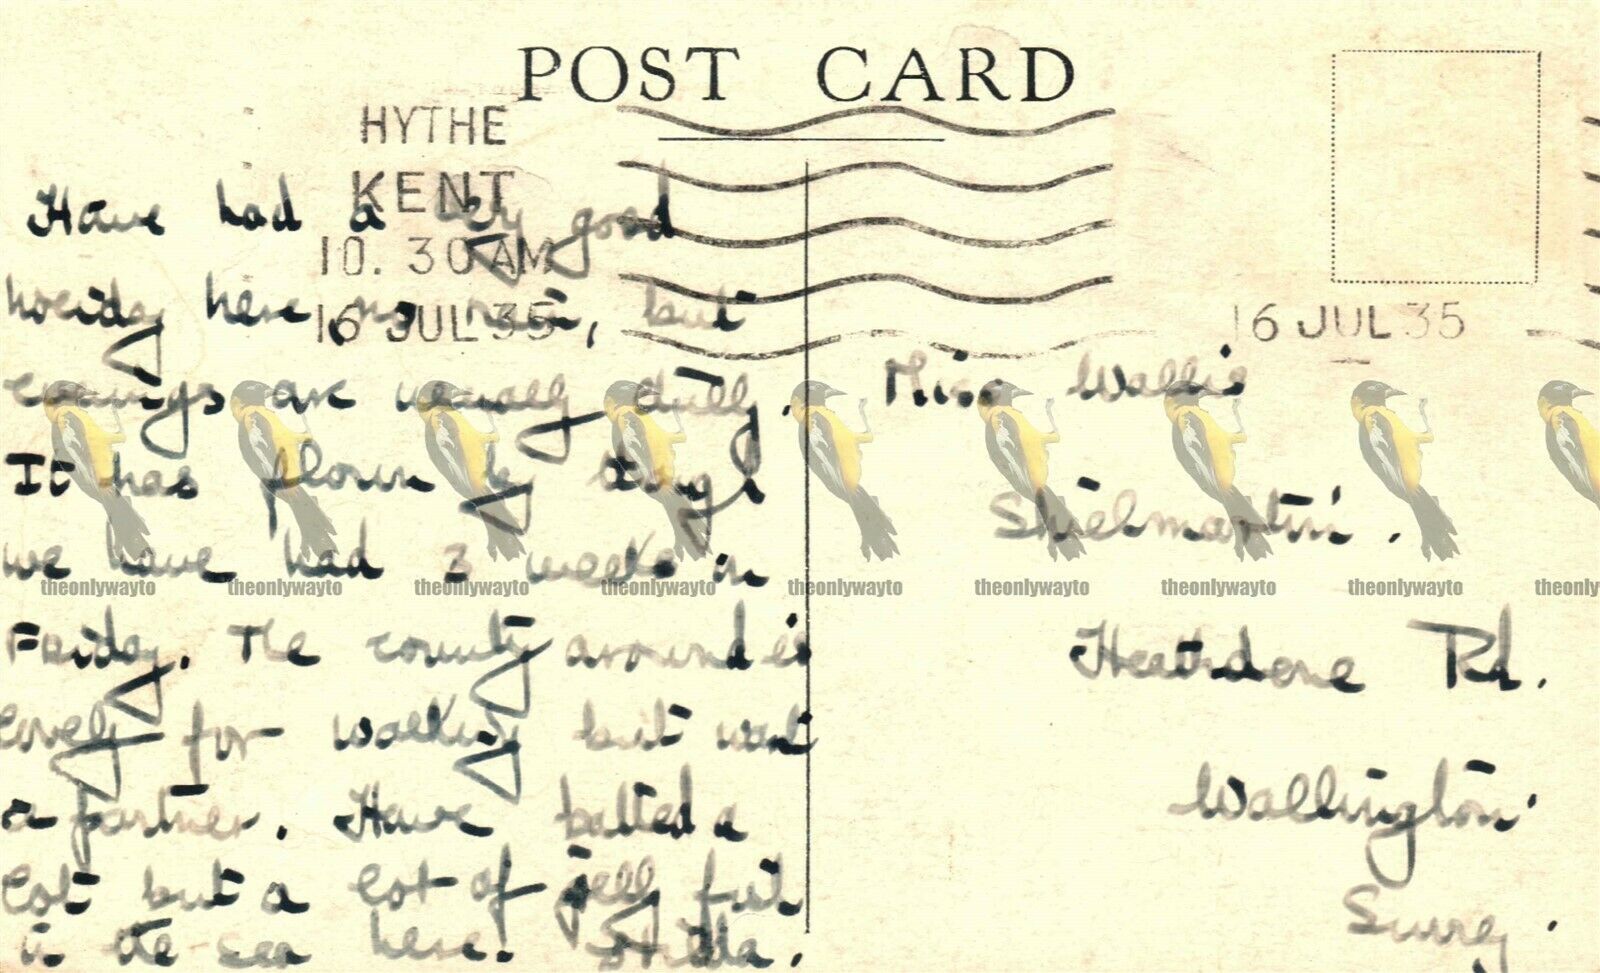 POST CARD
HYTHE
KENT
10. 30 AM
16 JUL 35
16 JUL 35
Have had a very good
holiday here, no rain, but
evenings are usually chilly.
It has flown by though
we have had 3 weeks on
Friday. The country around is
lovely for walking but want
a partner. Have bathed a
lot but a lot of jelly fish
in the sea here.
Miss Wallis
Shielmartin.
Heathdene Rd.
Wallington.
Surrey.
theonlywayto theonlywayto theonlywayto theonlywayto theonlywayto theonlywayto theonlywayto theonlywayto theonlywayto